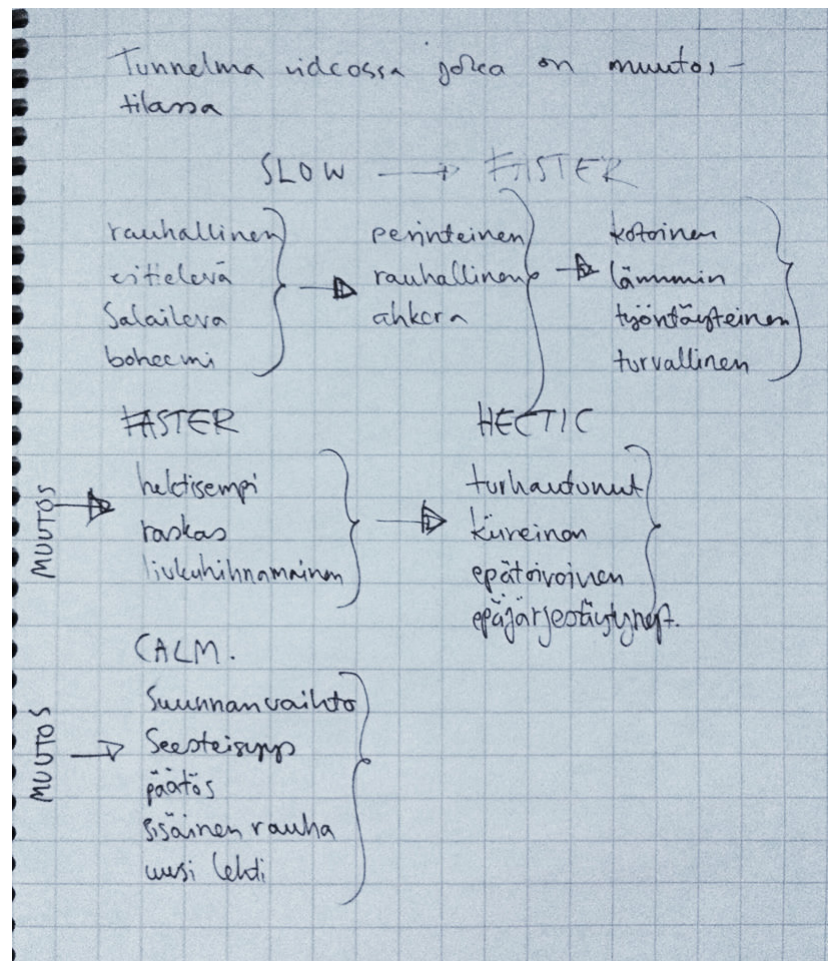 Tunnelma videossa joka on muutos-
tilassa
SLOW → FASTER
rauhallinen
esitelevä
Salaileva
boheemi
perinteinen
rauhallinen
ahkera
kotoinen
lämmin
työntäyteinen
turvallinen
FASTER
HECTIC
MUUTOS
hektisempi
raskas
liukuhihnamainen
turhautunut
kiireinen
epätoivoinen
epäjärjestäytynyt.
CALM.
MUUTOS
Suunnanvaihto
Seesteisyys
päätös
sisäinen rauha
uusi lehti